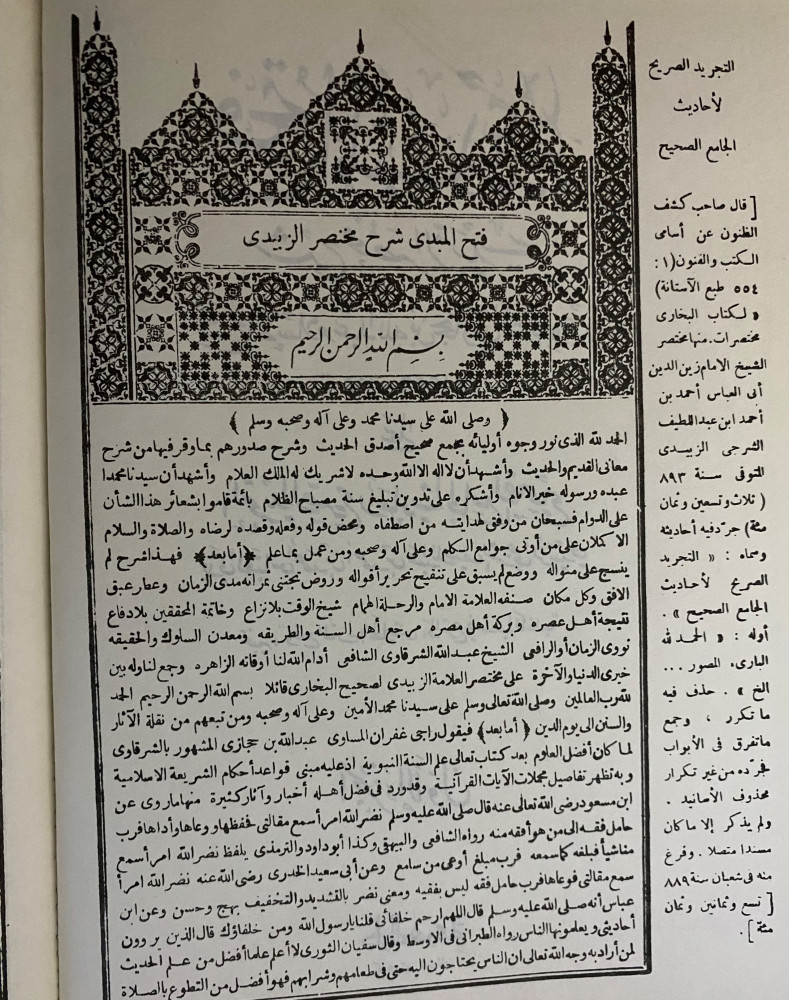 فتح المبدى شرح مختصر الزبيدى
بسم الله الرحمن الرحيم
﴿ وصلى الله على سيدنا محمد وعلى آله وصحبه وسلم ﴾
الحمد لله الذى نور وجوه أوليائه بمجمع صحيح أصدق الحديث وشرح صدورهم بما وقر فيها من شرح
معانى القديم والحديث وأشهد أن لا اله الا الله وحده لا شريك له الملك العلام وأشهد أن سيدنا محمدا
عبده ورسوله خير الانام وأشكره على تدوين تبليغ سنة مصباح الظلام بأئمة قاموا بشعائر هذا الشأن
على الدوام فسبحان من وفق لهدايته من اصطفاه ومحض قوله وفعله وقصده لرضاه والصلاة والسلام
الاكملان على من أوتى جوامع الكلم وعلى آله وصحبه ومن عمل بما علم ﴿أما بعد﴾ فهذا شرح لم
ينسج على منواله ووضع لم يسبق على تنقيح تحرير أقواله وروض تجتنى ثمراته مدى الزمان وعطار عبق
الافق وكل مكان صنفه العلامة الامام والرحلة الهمام شيخ الوقت بلا نزاع وخاتمة المحققين بلا دفاع
نتيجة أهل عصره وبركة أهل مصره مرجع أهل السنة والطريقه ومعدن السلوك والحقيقه
نووى الزمان أو الرافعى الشيخ عبد الله الشرقاوى الشافعى أدام الله لنا أوقاته الزاهره وجمع لنا وله بين
خيرى الدنيا والآخرة على مختصر العلامة الزبيدى لصحيح البخارى قائلا بسم الله الرحمن الرحيم الحمد
لله رب العالمين وصلى الله تعالى وسلم على سيدنا محمد الأمين وعلى آله وصحبه ومن تبعهم من نقلة الآثار
والسنن الى يوم الدين ﴿أما بعد﴾ فيقول راجى غفران المساوى عبد الله بن حجازى المشهور بالشرقاوى
لما كان أفضل العلوم بعد كتاب تعالى علم السنة النبوية اذ عليه مبنى قواعد أحكام الشريعة الاسلامية
وبه تظهر تفاصيل مجملات الآيات القرآنية وقد ورد فى فضل أهله أخبار وآثار كثيرة منها ما روى عن
ابن مسعود رضى الله تعالى عنه قال صلى الله عليه وسلم نضر الله امرأ سمع مقالتى فحفظها ووعاها وأداها فرب
حامل فقه الى من هو أفقه منه رواه الشافعى والبيهقى وكذا أبو داود والترمذى بلفظ نضر الله امرأ سمع
منا شيأ فبلغه كما سمعه فرب مبلغ أوعى من سامع وعن أبى سعيد الخدرى رضى الله عنه نضر الله امرأ
سمع مقالتى فوعاها فرب حامل فقه ليس بفقيه ومعنى نضر بالتشديد والتخفيف بهج وحسن وعن ابن
عباس أنه صلى الله عليه وسلم قال اللهم ارحم خلفائى قلنا يا رسول الله ومن خلفاؤك قال الذين يروون
أحاديثى ويعلمونها الناس رواه الطبرانى فى الاوسط وقال سفيان الثورى لا أعلم علما أفضل من علم الحديث
لمن أراد به وجه الله تعالى ان الناس يحتاجون اليه حتى فى طعامهم وشرابهم فهو أفضل من التطوع بالصلاة
التجريد الصريح
لأحاديث
الجامع الصحيح
[ قال صاحب كشف
الظنون عن أسامى
الكتب والفنون (١ :
٥٥٤ طبع الآستانة)
« لكتاب البخارى
مختصرات. منها مختصر
الشيخ الامام زين الدين
أبى العباس أحمد بن
أحمد ابن عبد اللطيف
الشرجى الزبيدى
المتوفى سنة ٨٩٣
( ثلاث وتسعين وثمان
مئة) جرد فيه أحاديثه
وسماه : « التجريد
الصريح لأحاديث
الجامع الصحيح » .
أوله : « الحمد لله
البارىء المصور ...
الخ » . حذف فيه
ما تكرر ، وجمع
ما تفرق فى الأبواب
فجرده من غير تكرار
محذوف الأسانيد .
ولم يذكر إلا ما كان
مسندا متصلا . وفرغ
منه فى شعبان سنة ٨٨٩
[ تسع وثمانين وثمان
مئة ] .